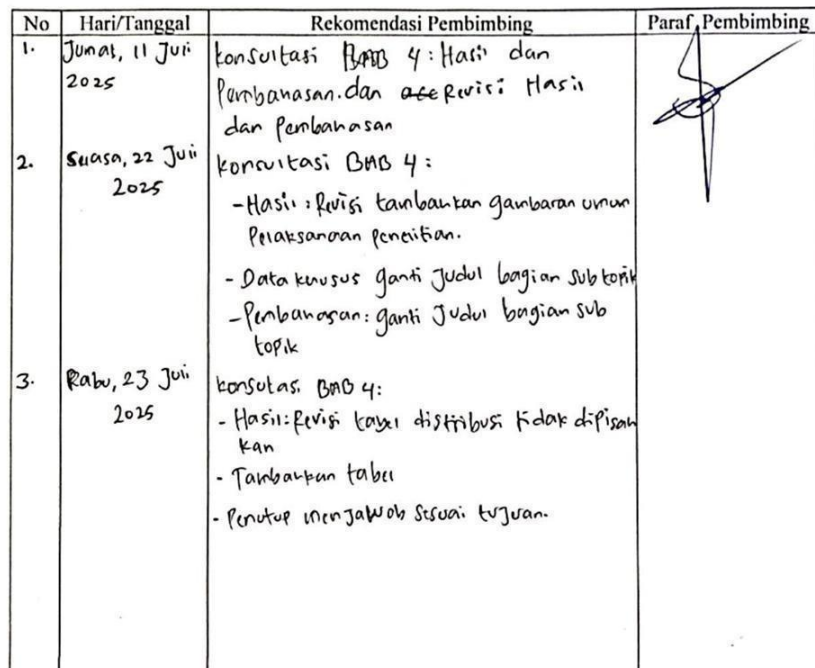 No Hari/Tanggal Rekomendasi Pembimbing Paraf Pembimbing
1. Jumat, 11 Juli konsultasi BAB 4: Hasil dan
2025 Pembahasan. dan acc Revisi Hasil
dan Pembahasan
2. Selasa, 22 Juli konsultasi BAB 4:
2025 - Hasil: Revisi tambahkan gambaran umum
Pelaksanaan penelitian.
- Data khusus ganti judul bagian sub topik
- Pembahasan: ganti Judul bagian sub
topik
3. Rabu, 23 Juli konsultasi BAB 4:
2025 - Hasil: Revisi tabel distribusi tidak dipisah
kan
- Tambahkan tabel
- Penutup menjawab sesuai tujuan.